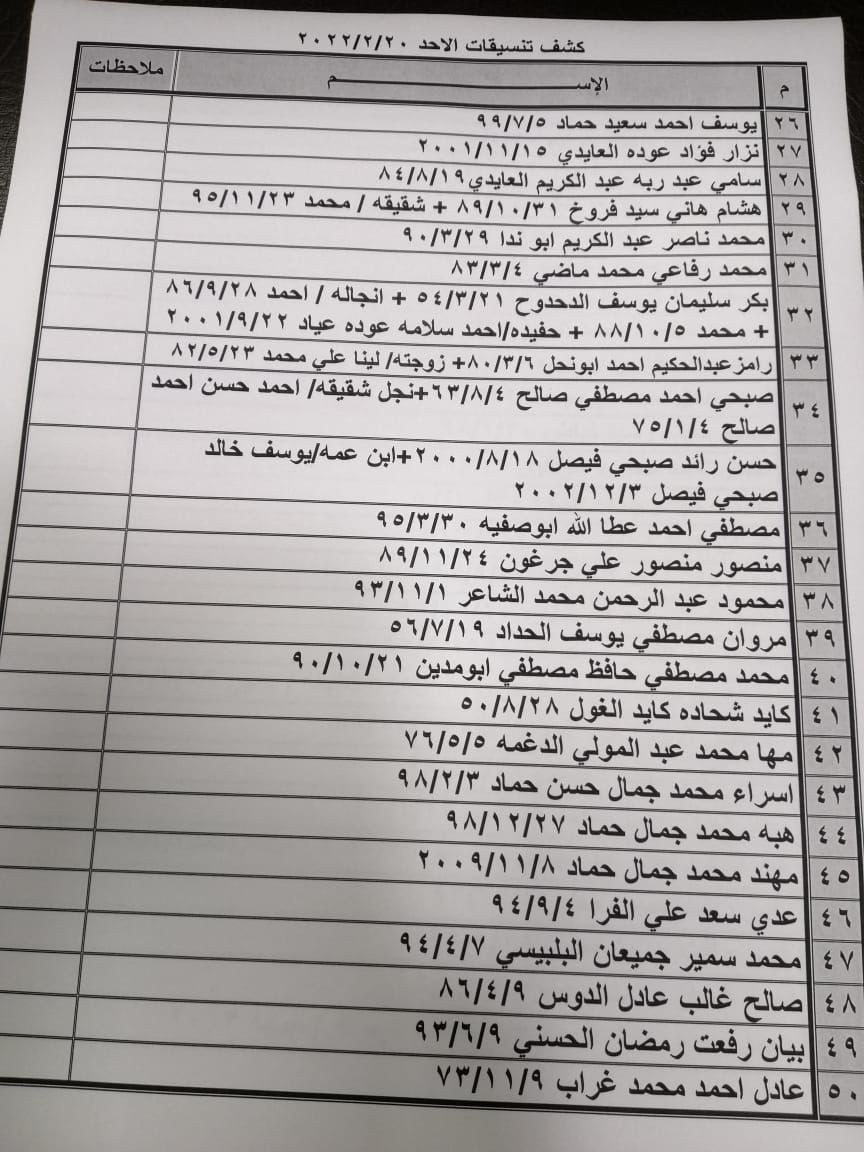 كشف تنسيقات الاحد ٢٠٢٢/٢/٢٠
م الإســـــــــم ملاحظات
٢٦ يوسف احمد سعيد حماد ٩٩/٧/٥
٢٧ نزار فؤاد عوده العايدي ٢٠٠١/١١/١٥
٢٨ سامي عبد ربه عبد الكريم العايدي ٨٤/٨/١٩
٢٩ هشام هاني سيد فروخ ٨٩/١٠/٣١ + شقيقه / محمد ٩٥/١١/٢٣
٣٠ محمد ناصر عبد الكريم ابو ندا ٩٠/٣/٢٩
٣١ محمد رفاعي محمد ماضي ٨٣/٣/٤
٣٢ بكر سليمان يوسف الدحدوح ٥٤/٣/٢١ + انجاله / احمد ٨٦/٩/٢٨
+ محمد ٨٨/١٠/٥ + حفيده/احمد سلامه عوده عياد ٢٠٠١/٩/٢٢
٣٣ رامزعبدالحكيم احمد ابونحل ٨٠/٣/٦+ زوجته/ لينا علي محمد ٨٢/٥/٢٣
٣٤ صبحي احمد مصطفي صالح ٦٣/٨/٤+نجل شقيقه/ احمد حسن احمد
صالح ٧٥/١/٤
٣٥ حسن رائد صبحي فيصل ٢٠٠٠/٨/١٨+ابن عمه/يوسف خالد
صبحي فيصل ٢٠٠٢/١٢/٣
٣٦ مصطفي احمد عطا الله ابوصفيه ٩٥/٣/٣٠
٣٧ منصور منصور علي جرغون ٨٩/١١/٢٤
٣٨ محمود عبد الرحمن محمد الشاعر ٩٣/١١/١
٣٩ مروان مصطفي يوسف الحداد ٥٦/٧/١٩
٤٠ محمد مصطفي حافظ مصطفي ابومدين ٩٠/١٠/٢١
٤١ كايد شحاده كايد الغول ٥٠/٨/٢٨
٤٢ مها محمد عبد المولي الدغمه ٧٦/٥/٥
٤٣ اسراء محمد جمال حسن حماد ٩٨/٢/٣
٤٤ هبه محمد جمال حماد ٩٨/١٢/٢٧
٤٥ مهند محمد جمال حماد ٢٠٠٩/١١/٨
٤٦ عدي سعد علي الفرا ٩٤/٩/٤
٤٧ محمد سمير جميعان البلبيسي ٩٤/٤/٧
٤٨ صالح غالب عادل الدوس ٨٦/٤/٩
٤٩ بيان رفعت رمضان الحسني ٩٣/٦/٩
٥٠ عادل احمد محمد غراب ٧٣/١١/٩